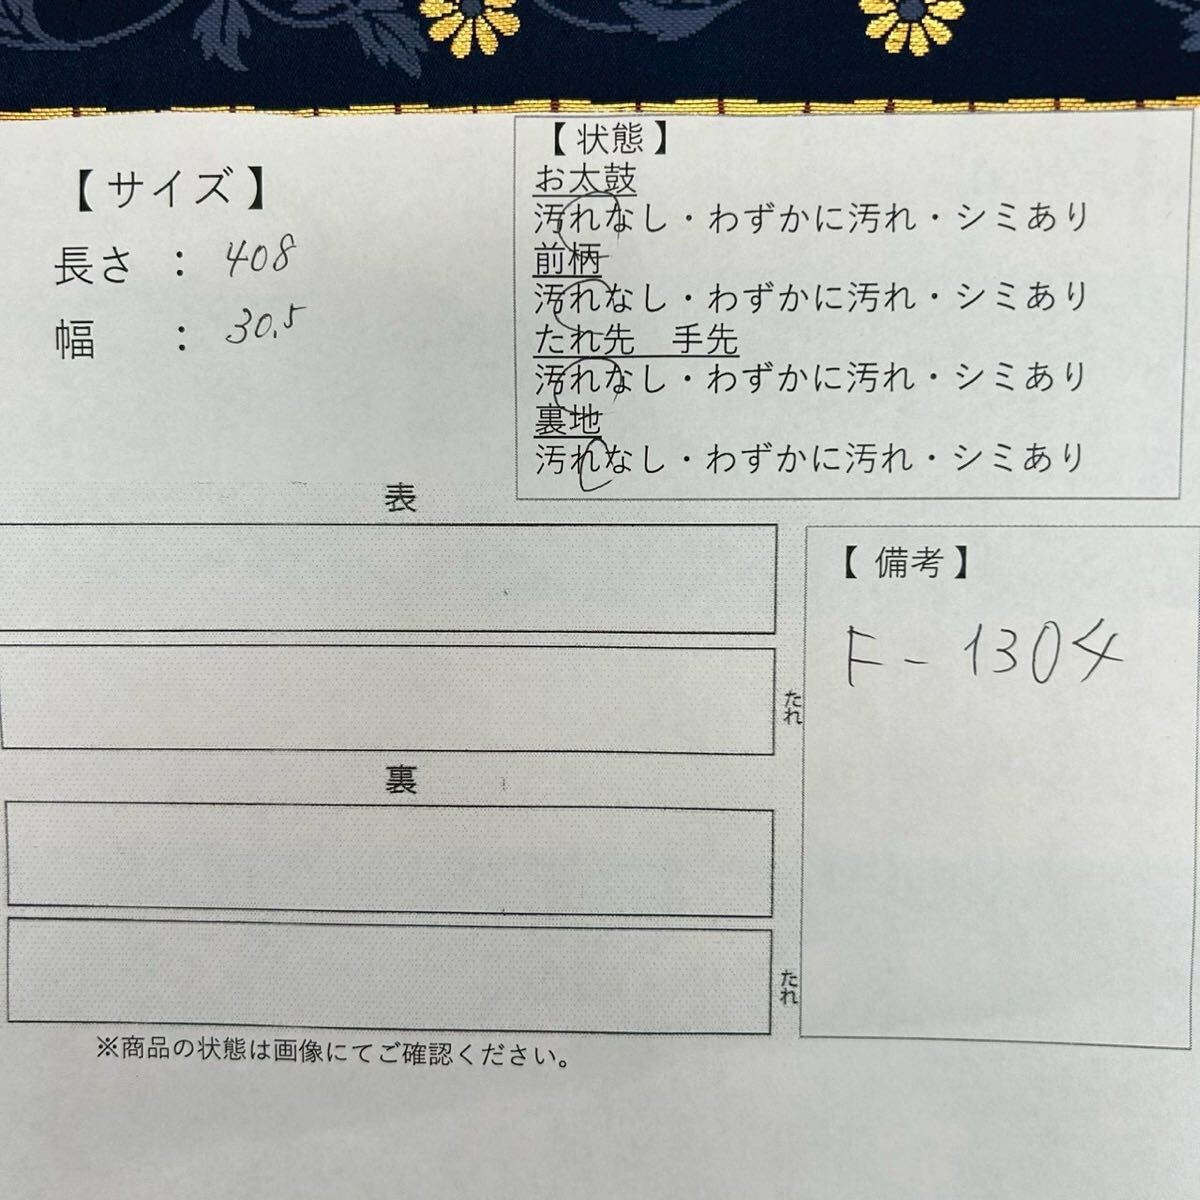 【 サイズ 】
長さ ： 408
幅 ： 30.5
【 状態 】
お太鼓
汚れなし・わずかに汚れ・シミあり
前柄
汚れなし・わずかに汚れ・シミあり
たれ先　手先
汚れなし・わずかに汚れ・シミあり
裏地
汚れなし・わずかに汚れ・シミあり
表
たれ
裏
たれ
【 備考 】
F - 1304
※商品の状態は画像にてご確認ください。